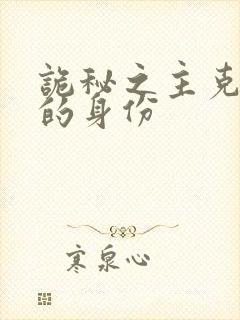 詭秘之主克
的身份
寒泉心